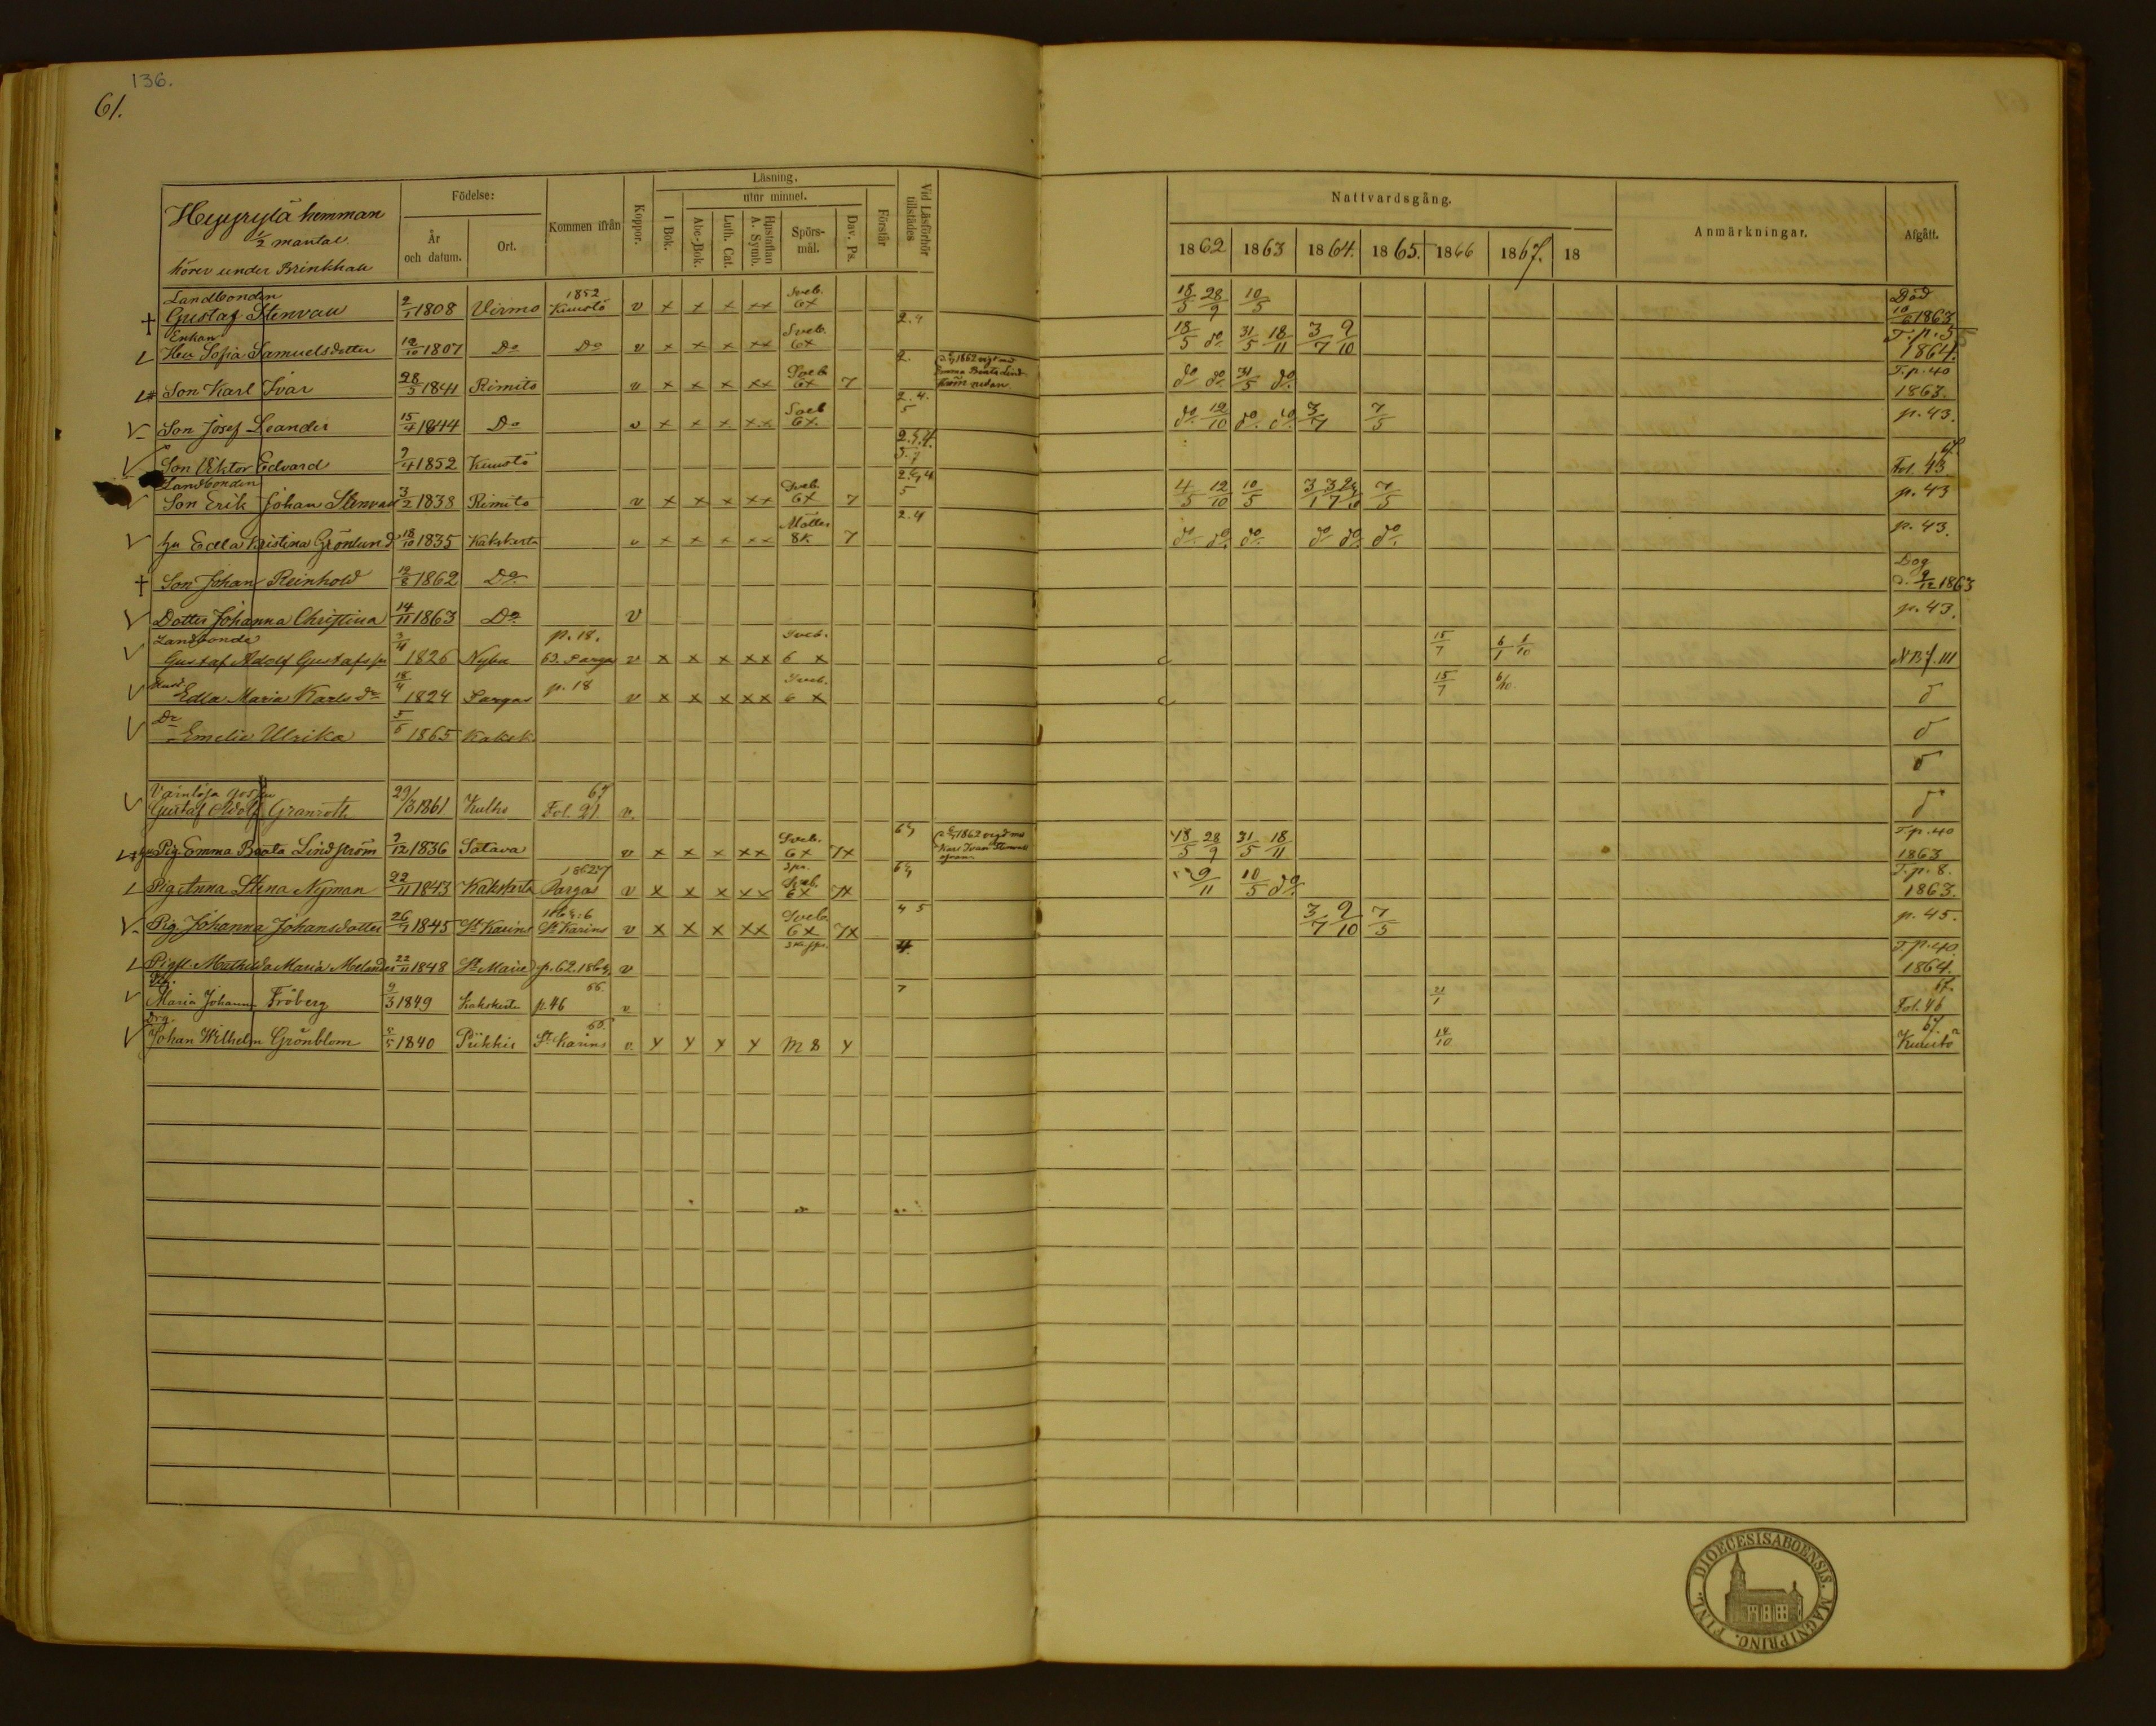 136.
61.
Heyyrylä hemman
1/2 mantal
hörer under Brinkhall
Födelse:
År och datum.
Ort.
Kommen ifrån
Koppor.
Läsning.
I Bok.
utur minnet.
Abc-Bok.
Luth. Cat.
Hustaflan A. Symb.
Spörs-mål.
Dav. Ps.
Förstår
Vid Läsförhör tillstädes
Nattvardsgång.
1862 1863 1864. 1865. 1866 1867. 18
Anmärkningar.
Afgått.
Landbonden 1852 Sveb. Död
† Gustaf Stenvall 2/1 1808 Virmo Kuustö v x x x xx 6x 18/5 28/9 10/5 10/6 1863
Enkan Sveb. 2.4 T. p. 5
Hu Sofia Samuelsdotter 12/10 1807 Do Do v x x x xx 6x 18/5 do 31/5 18/11 3/7 9/10 1864.
Son Karl Ivar 28/5 1841 Rimito v x x x xx Sveb 6x 7 2. 1862 vigd med Emma Beata Lindström nedan do do 31/5 do T. p. 40 1863.
Son Josef Leander 15/4 1844 Do v x x x xx Sveb 6x. 2.4. 5 do 12/10 do. do. 3/7 7/5 p. 43.
Son Viktor Edvard 7/4 1852 Kuustö Fol. 43
Landbonden
Son Erik Johan Stenvall 3/2 1838 Rimito v x x x xx Sveb. 6x 7 5 4/5 12/10 10/5 7/5 p. 43
Hu Edla Kristina Grönlund 18/10 1835 Kakskerta v x x x xx Möller 8k 7 2.4 do do do. do do. do. p. 43.
† Son Johan Reinhold 12/8 1862 Do Dog d. 9/12 1863
Dotter Johanna Christina 14/11 1863 Do v p. 43.
Landbonde p. 18. Sveb.
Gustaf Adolf Gustafsson 3/4 1826 Nybu 63. Pargas v x x x xx 6 x 15/7 6/1 1/10 NB f. 111
Hust Edla Maria Karlsdr 18/4 1824 Pargas p. 18 v x x x xx Sveb. 6 x 15/7 6/10.
Dr Emelia Ulrika 5/6 1865 Kaksk.
Värnlösa gossen 67
Gustaf Adolf Granroth 29/3 1861 Kulho Fol. 21 v.
Pig. Emma Beata Lindström 7/12 1836 Satava v x x x xx Sveb. 6x 7x 1862 vigd med Karl Ivar Stenvall ofvan 18/5 28/9 31/5 18/11 T. p. 40 1863
Pig Anna Stina Nyman 22/11 1843 Kakskerta Pargas v x x x xx Sveb. 6x 7x 9/11 10/5 do. T. p. 8. 1863.
Pig. Johanna Johansdotter 26/7 1845 St Karins St Karins v x x x xx Sveb. 6x 7x 4 5 3/7 9/10 7/5 p. 45.
Pigfl. Mathilda Maria Melander 22/11 1848 St Marie p. 62. v 4. T. p. 40. 1864.
Maria Johanna Fröberg 9/3 1849 Kakskerta p. 46 66. v 7 21/1 67. Fol. 46
Drg.
Johan Wilhelm Grönblom 1840 Piikkis St Karins 66. v. y y y y M 8 y 14/10 67. Kuustö
FINL. DIOECESIS ABOENSIS. MAGNI PRINC.